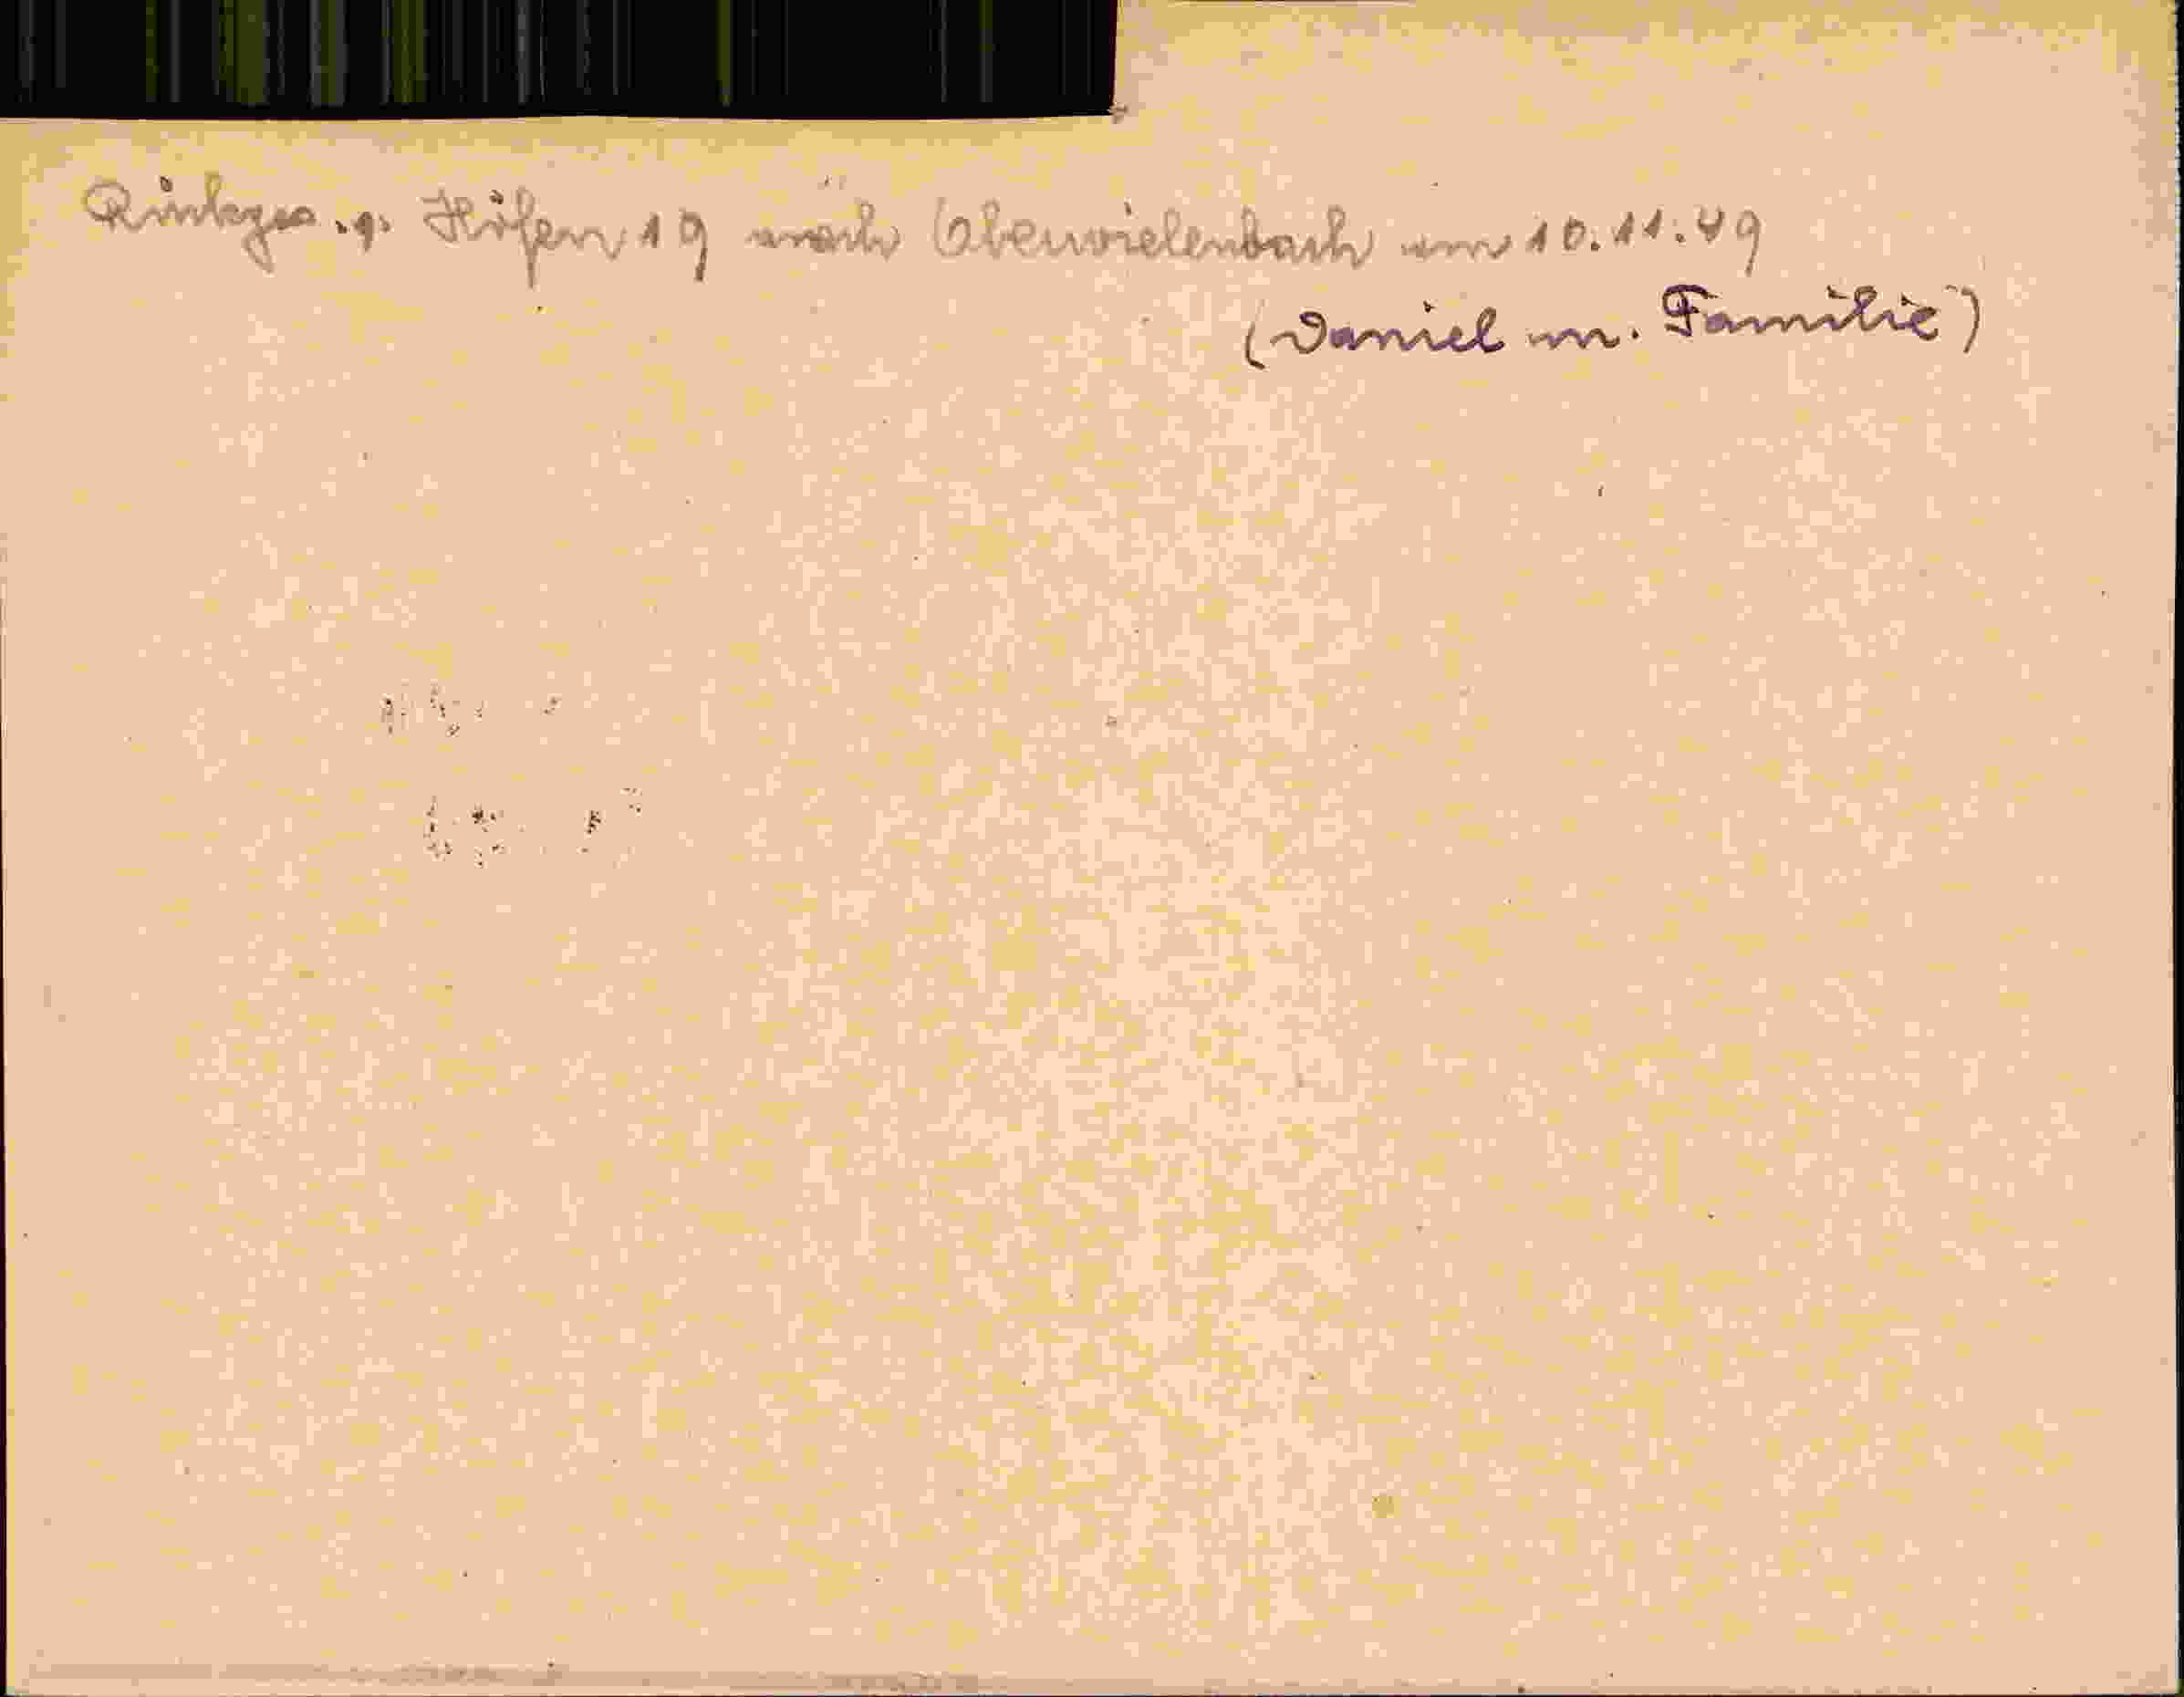 Rückgef. v. Höfen 19 nach Oberwielenbach am 10.11.49
(Daniel m. Familie)